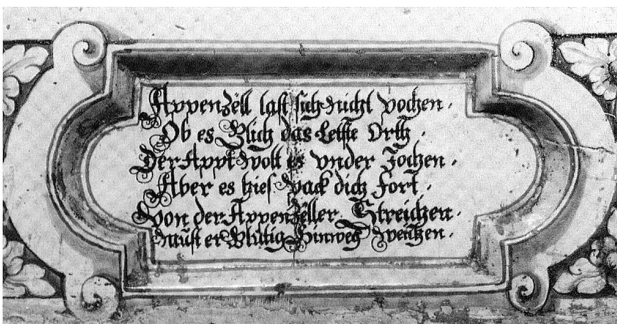 Appenzell last sich nicht pochen.
Ob es Glich das Letste Orth.
Der Appt wolt es vnder Jochen.
Aber es hies pack dich fort.
Von der Appenzeller Streichen.
Must er Blutig Hinweg weichen.